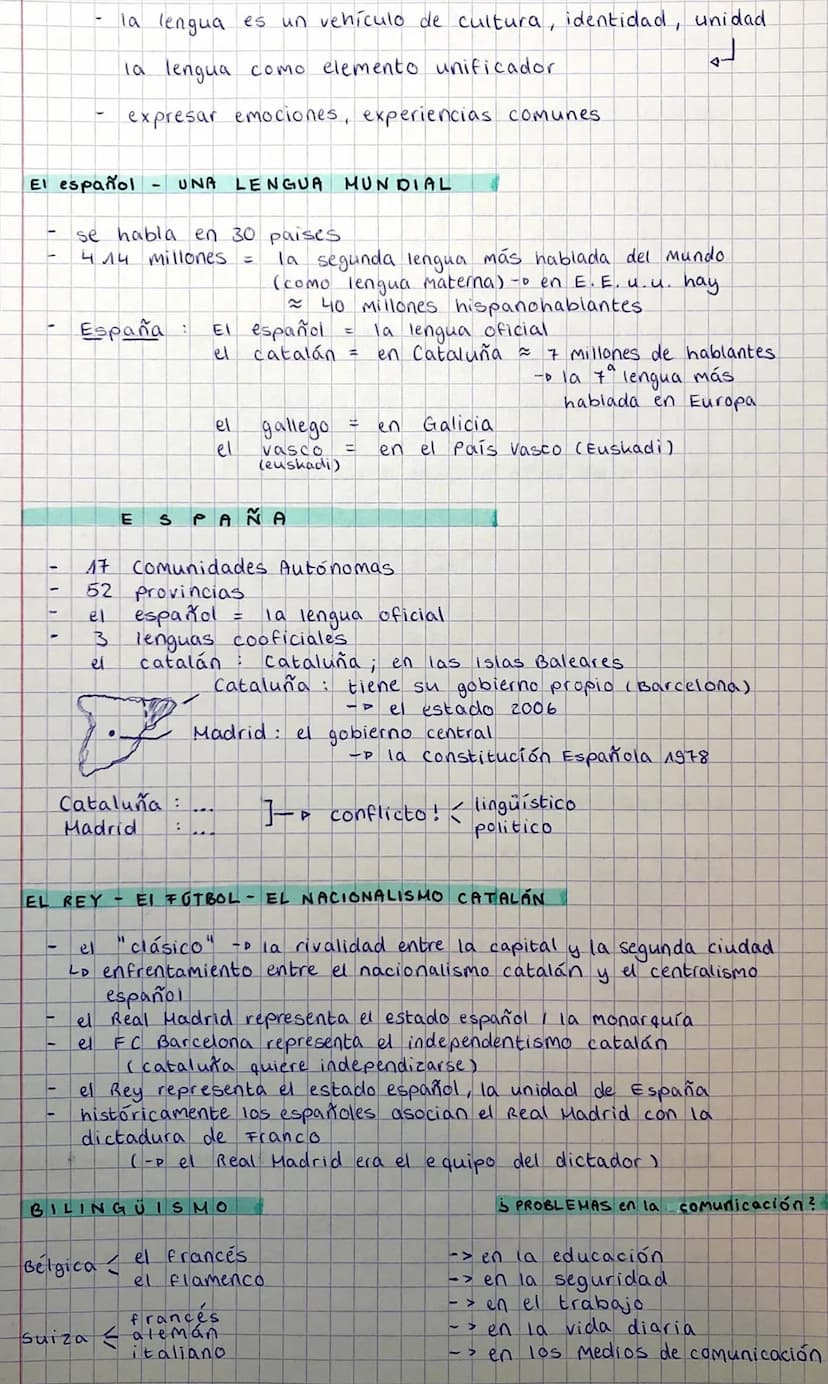 - la lengua es un vehículo de cultura, identidad, unidad
la lengua como elemento unificador
- expresar emociones, experiencias comunes
El español - UNA LENGUA MUNDIAL
- se habla en 30 paises
- 414 millones = la segunda lengua más hablada del mundo
(como lengua materna) -> en E.E.u.u. hay
≈ 40 millones hispanohablantes
- España : El español = la lengua oficial
el catalán = en Cataluña ≈ 7 millones de hablantes
-> la 7ª lengua más
hablada en Europa
el gallego = en Galicia
el vasco = en el País Vasco (Euskadi)
(euskadi)
ESPAÑA
- 17 Comunidades Autónomas
- 52 provincias
- el español = la lengua oficial
- 3 lenguas cooficiales
el catalán : Cataluña ; en las Islas Baleares
Cataluña : tiene su gobierno propio (Barcelona)
-> el estado 2006
Madrid : el gobierno central
-> la Constitución Española 1978
Cataluña : ...
Madrid : ...
]-> conflicto! < lingüístico
politico
EL REY - El FÚTBOL - EL NACIONALISMO CATALÁN
- el "clásico" -> la rivalidad entre la capital y la segunda ciudad
↳ enfrentamiento entre el nacionalismo catalán y el centralismo
español
- el Real Madrid representa el estado español / la monarquía
- el FC Barcelona representa el independentismo catalán
(cataluña quiere independizarse)
- el Rey representa el estado español, la unidad de España
- históricamente los españoles asocian el Real Madrid con la
dictadura de Franco
(-> el Real Madrid era el equipo del dictador)
BILINGÜISMO
Bélgica < el francés
el flamenco
Suiza < francés
alemán
italiano
¿PROBLEMAS en la comunicación?
-> en la educación
-> en la seguridad
-> en el trabajo
-> en la vida diaria
-> en los medios de comunicación